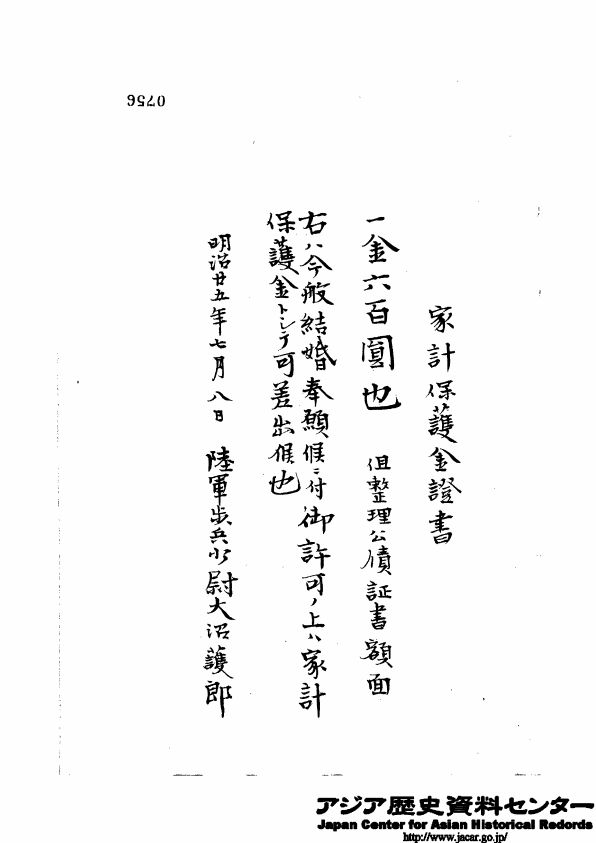 0756
家計保護金證書
一金六百圓也 但整理公債証書額面
右ハ今般結婚奉願候ニ付御許可ノ上ハ家計
保護金トシテ可差出候也
明治廿五年七月八日 陸軍歩兵少尉大沼護郎
アジア歴史資料センター
Japan Center for Asian Historical Redords
http://www.jacar.go.jp/